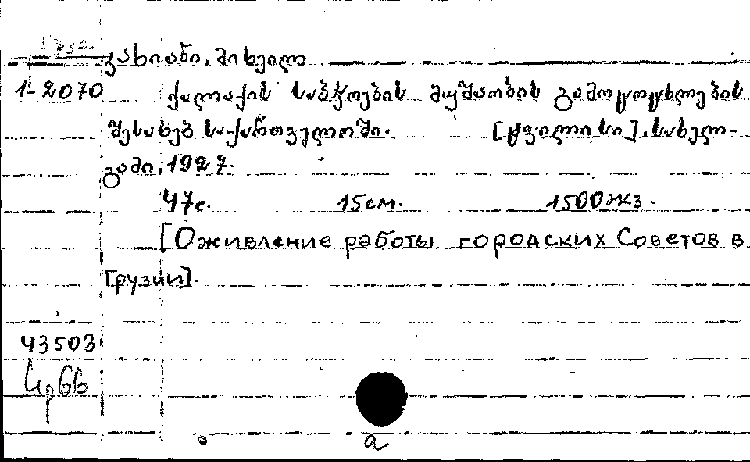 კახიანი, მიხეილ
1-2070 ქალაქის საბჭოების მუშაობის გამოცოცხლების
შესახებ საქართველოში. [ტფილისი], სახელ-
გამი, 1927.
47с. 15см. 1500экз.
[Оживление работы городских Советов в
Грузии].
43503
a